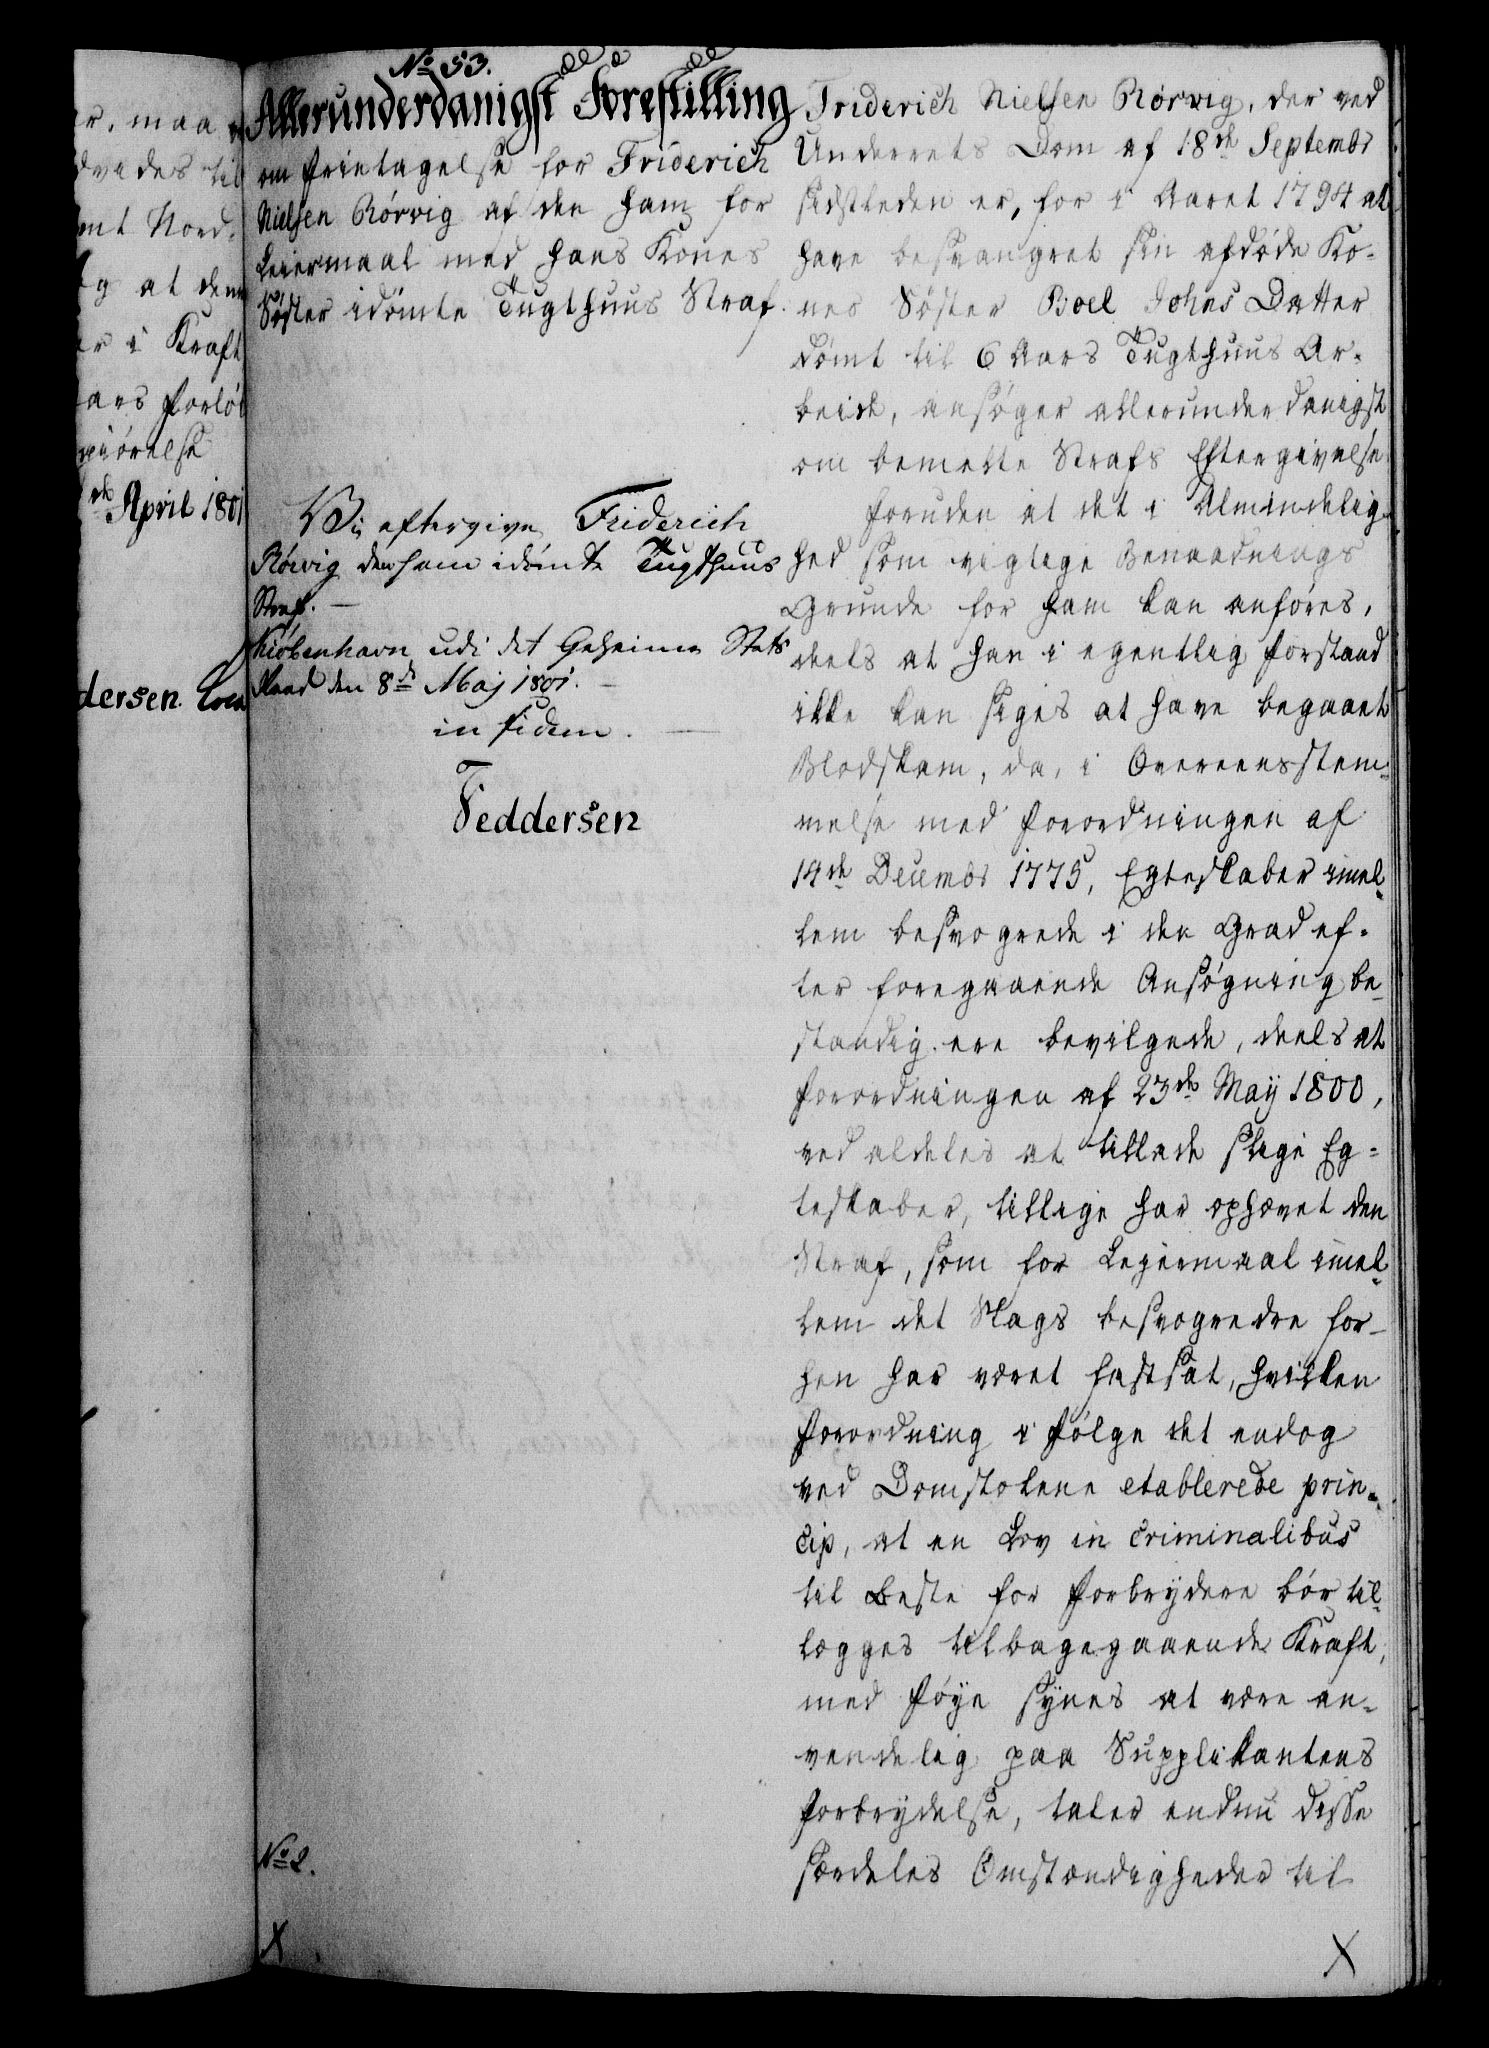 r. maa
dvides til
mt Nord-
g at den
r i Kraft
ars Forlöb
giörelse
de April 1801
dersen.
No 53.
Allerunderdanigst Forestilling
om Fritagelse for Friderich
Nielsen Rörvig af den ham for
Leiermaal med hans Kones
Söster idömte Tugthuus Straf.
Vi eftergive Friderich
Rörvig den ham idömte Tugthuus
Straf. —
Kiöbenhavn udi det Geheime Stats
Raad den 8de Maj 1801. —
in fidem. —
Feddersen
No 2.
X
Friderich Nielsen Rörvig, der ved
Underrets Dom af 18de Septembr
sidstleden er, for i Aaret 1794 at
have besvangret sin afdöde Ko-
nes Söster Boel Johns Datter
dömt til 6 Aars Tugthuus Ar-
beide, ansöger allerunderdanigst
om bemelte Strafs Eftergivelse.
Foruden at det i Almindelig-
hed som vigtige Benaadnings
Grunde for ham kan anföres,
deels at han i egentlig Forstand
ikke kan siges at have begaaet
Blodskam, da, i Overeensstem-
melse med Forordningen af
14de Decembr 1775, Egteskaber imel-
lem besvogrede i den Grad ef-
ter foregaaende Ansögning be-
standig ere bevilgede, deels at
Forordningen af 23de May 1800,
ved aldeles at tillade slige Eg-
teskaber, tillige har ophævet den
Straf, som for Lejermaal imel-
lem det Slags besvogrede for-
hen har været fastsat, hvilken
Forordning i Fölge det endog
ved Domstolene etablerede prin-
cip, at en Lov in criminalibus
til Beste for Forbrydere bör til-
lægges tilbagegaaende Kraft,
med Föye synes at være an-
vendelig paa Supplikantens
Forbrydelse, taler endnu disse
særdeles Omstændigheder til
X